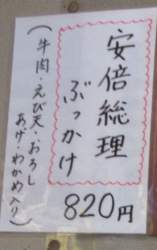 安倍総理
ぶっかけ
820円
(牛肉・えび天・おろし
あげ・わかめ入り)